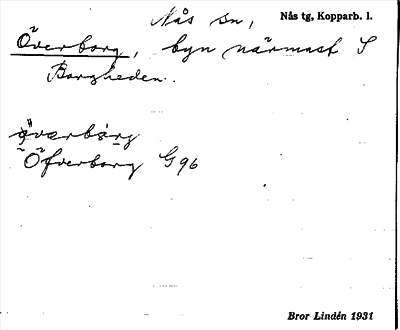 Nås sn, Nås tg, Kopparb. l.
Överborg, byn närmast S
Borgheden.
överbórg
Öfverborg G96
Bror Lindén 1931